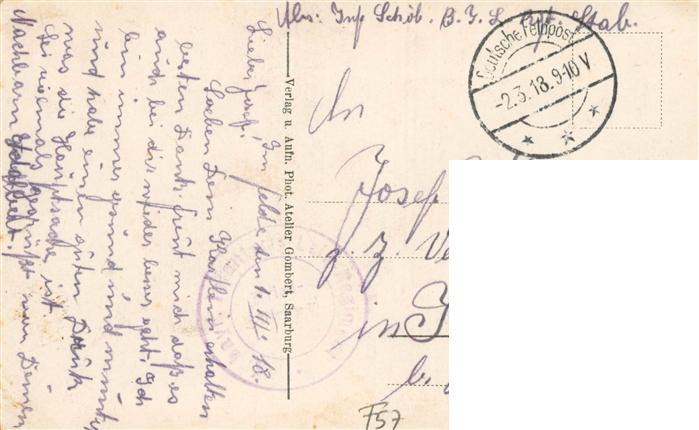 Abs: Inf Schöb. B. I. L. Rgt. Stab.
Deutsche Feldpost
-2.3.18.9-10V
An
Josef
z. Z.
in
b.
Verlag u. Aufn. Phot. Atelier Gombert, Saarburg
F57
Im Felde den 1. III. 18.
Lieber Josef!
Soeben Dein Kartlein erhalten
besten Dank. freut mich daß es
auch bei dir wieder besser geht. Ich
bin immer gesund und munter
und habe einen guten Druck
was die Hauptsache ist.
Sei vielmals gegrüßt von Deinem
Nachbarn